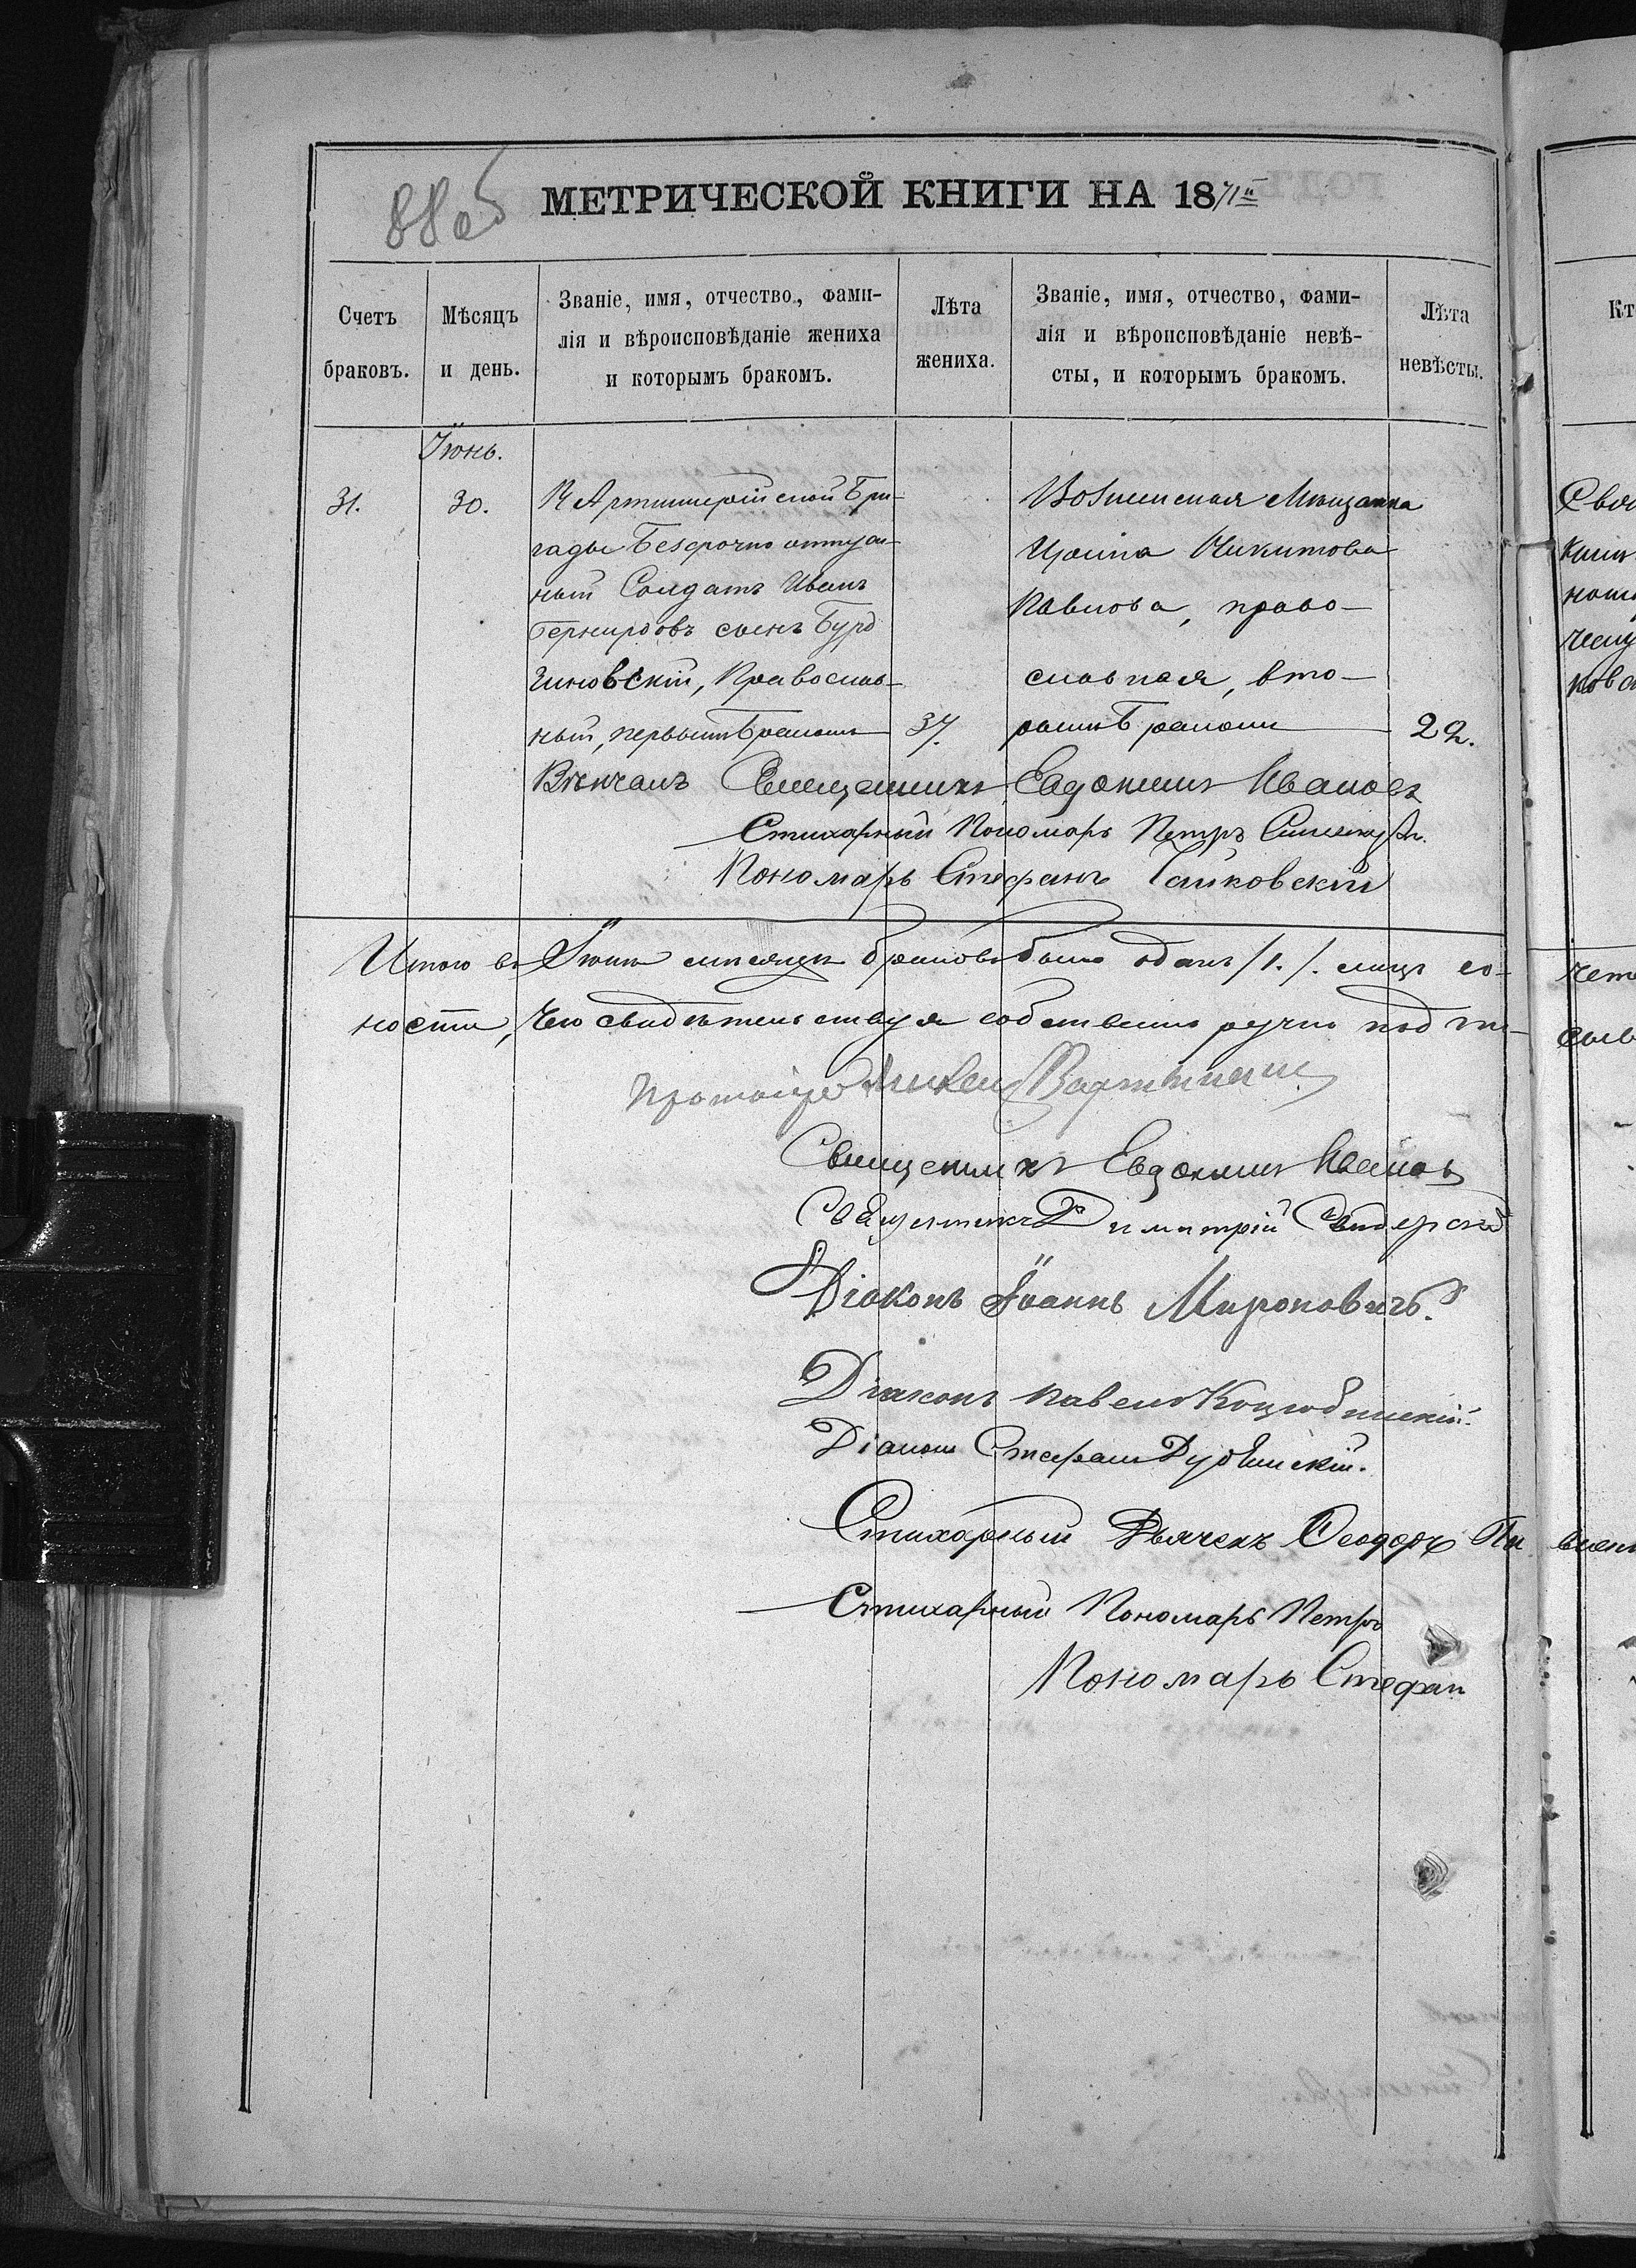 88об МЕТРИЧЕСКОЙ КНИГИ НА 1871й
Счетъ браковъ.
Мѣсяцъ и день.
Званіе, имя, отчество, фами-
лія и вѣроисповѣданіе жениха
и которымъ бракомъ.
Лѣта
жениха.
Званіе, имя, отчество, фами-
лія и вѣроисповѣданіе невѣ-
сты, и которымъ бракомъ.
Лѣта
невѣсты.
Іюнь.
31.
30.
Артиллерійской Бри-
гады Безсрочно отпуск-
ный Солдатъ Иванъ
сынъ Бурд
зиновскій, Православ-
ный, первымъ Бракомъ
37.
Вознесенская Мѣщанка
Ирина Никитова
Павлова, право-
славная, вто-
рымъ Бракомъ
22.
Вѣнчалъ Священникъ Евдокимъ Ивановъ
Стихарный Пономарь Петръ
Пономарь Стефанъ Гайковскій
Итого въ Іюнѣ мѣсяцѣ браковъ было одинъ /1./.
ности, Что свидѣтельствуя собственно ручно под пи-
Протоіерей
Священникъ Евдокимъ Ивановъ
Священникъ Димитрій
Діаконъ Іоаннъ Мироновичъ.
Діаконъ Павелъ Коцюбинскій.
Діаконъ Стефанъ Дубинскій.
Стихарный Дьячекъ Феодоръ
Стихарный Пономарь Петръ
Пономарь Стефан